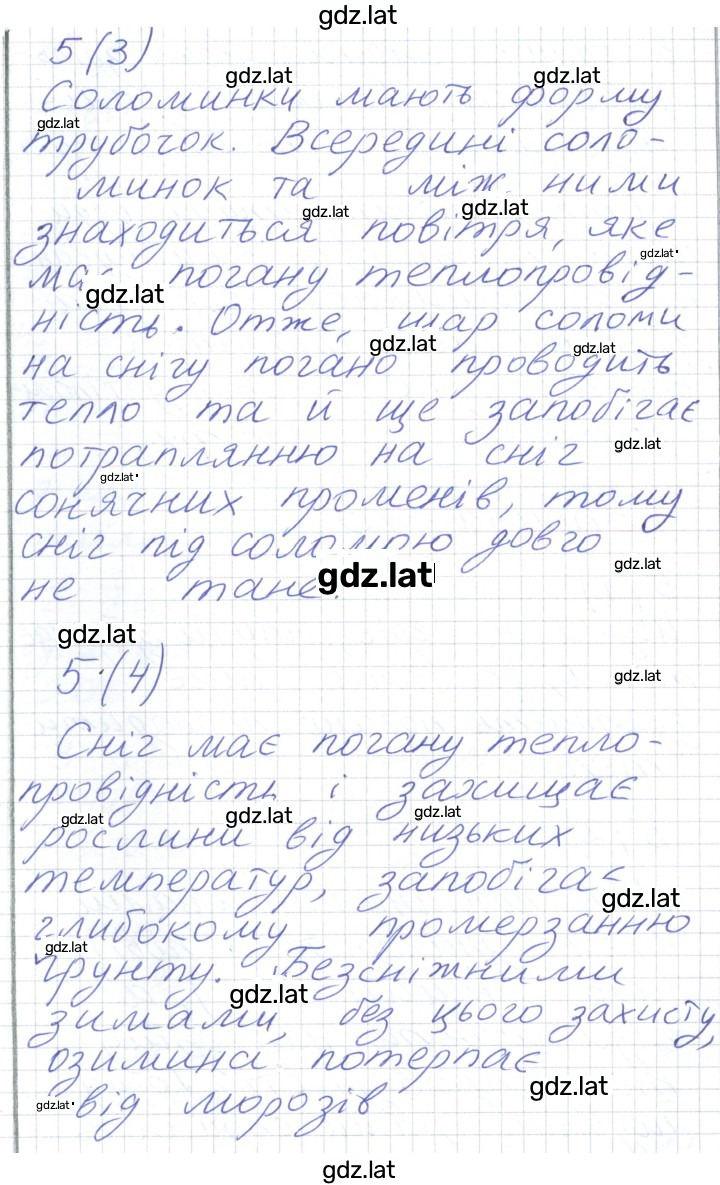 gdz.lat
5 (3)
gdz.lat gdz.lat
Соломинки мають форму
gdz.lat
трубочок. Всередині соло-
минок та між ними
gdz.lat gdz.lat
знаходиться повітря, яке
gdz.lat
має погану теплопровід-
gdz.lat
ність. Отже, шар соломи
gdz.lat gdz.lat
на снігу погано проводить
тепло та й ще запобігає
потраплянню на сніг gdz.lat
gdz.lat
сонячних променів, тому
сніг під соломою довго
gdz.lat gdz.lat
не тане.
gdz.lat
5 (4) gdz.lat
Сніг має погану тепло-
провідність і захищає
gdz.lat gdz.lat gdz.lat
рослини від низьких
температур, запобігає
gdz.lat
глибокому промерзанню
gdz.lat
ґрунту. Безсніжними
gdz.lat
зимами, без цього захисту,
озимина потерпає
gdz.lat
gdz.lat від морозів
gdz.lat